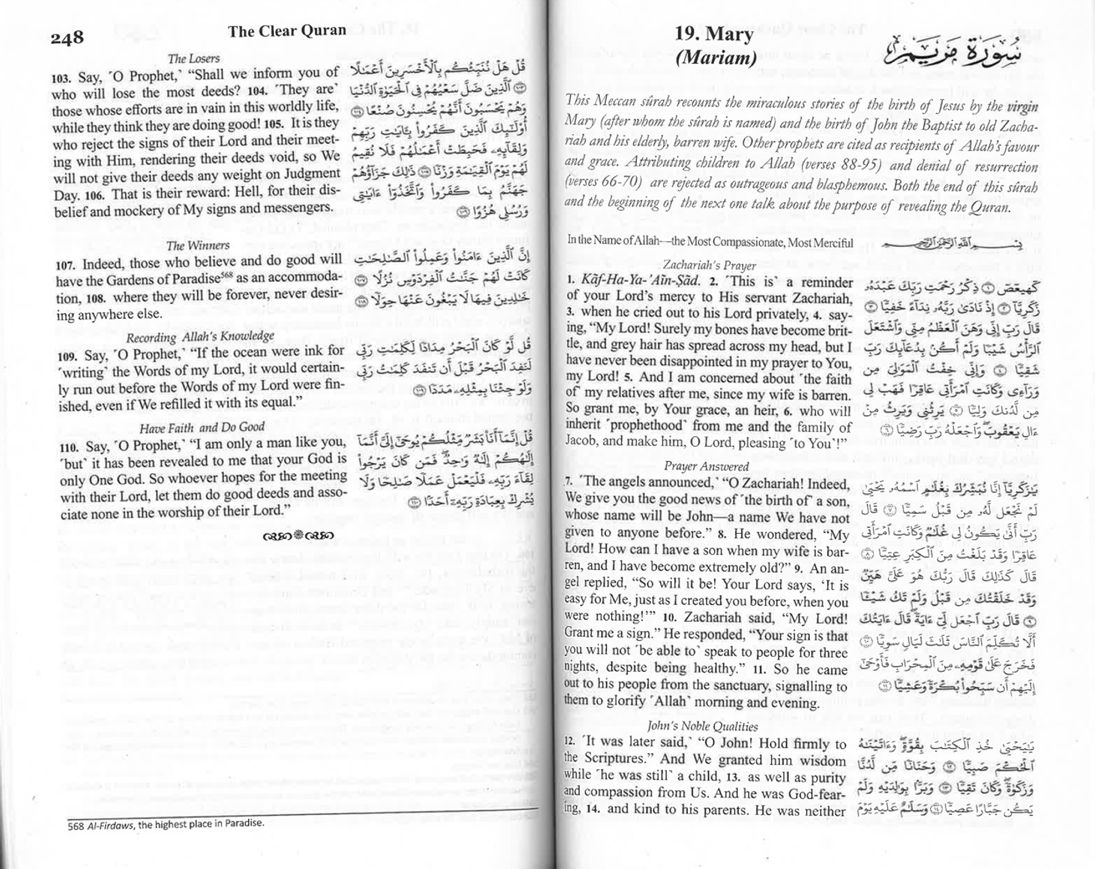 248
The Clear Quran
The Losers
103. Say, ˹O Prophet,˺ “Shall we inform you of
who will lose the most deeds? 104. ˹They are˺
those whose efforts are in vain in this worldly life,
while they think they are doing good! 105. It is they
who reject the signs of their Lord and their meet-
ing with Him, rendering their deeds void, so We
will not give their deeds any weight on Judgment
Day. 106. That is their reward: Hell, for their dis-
belief and mockery of My signs and messengers.
قُلْ هَلْ نُنَبِّئُكُم بِٱلْأَخْسَرِينَ أَعْمَٰلًا
١٠٣ ٱلَّذِينَ ضَلَّ سَعْيُهُمْ فِى ٱلْحَيَوٰةِ ٱلدُّنْيَا
وَهُمْ يَحْسَبُونَ أَنَّهُمْ يُحْسِنُونَ صُنْعًا ١٠٤
أُو۟لَٰٓئِكَ ٱلَّذِينَ كَفَرُوا۟ بِـَٔايَٰتِ رَبِّهِمْ
وَلِقَآئِهِۦ فَحَبِطَتْ أَعْمَٰلُهُمْ فَلَا نُقِيمُ
لَهُمْ يَوْمَ ٱلْقِيَٰمَةِ وَزْنًا ١٠٥ ذَٰلِكَ جَزَآؤُهُمْ
جَهَنَّمُ بِمَا كَفَرُوا۟ وَٱتَّخَذُوٓا۟ ءَايَٰتِى
وَرُسُلِى هُزُوًا ١٠٦
The Winners
107. Indeed, those who believe and do good will
have the Gardens of Paradise568 as an accommoda-
tion, 108. where they will be forever, never desir-
ing anywhere else.
إِنَّ ٱلَّذِينَ ءَامَنُوا۟ وَعَمِلُوا۟ ٱلصَّٰلِحَٰتِ
كَانَتْ لَهُمْ جَنَّٰتُ ٱلْفِرْدَوْسِ نُزُلًا ١٠٧
خَٰلِدِينَ فِيهَا لَا يَبْغُونَ عَنْهَا حِوَلًا ١٠٨
Recording Allah’s Knowledge
109. Say, ˹O Prophet,˺ “If the ocean were ink for
˹writing˺ the Words of my Lord, it would certain-
ly run out before the Words of my Lord were fin-
ished, even if We refilled it with its equal.”
قُل لَّوْ كَانَ ٱلْبَحْرُ مِدَادًا لِّكَلِمَٰتِ رَبِّى
لَنَفِدَ ٱلْبَحْرُ قَبْلَ أَن تَنفَدَ كَلِمَٰتُ رَبِّى
وَلَوْ جِئْنَا بِمِثْلِهِۦ مَدَدًا ١٠٩
Have Faith and Do Good
110. Say, ˹O Prophet,˺ “I am only a man like you,
˹but˺ it has been revealed to me that your God is
only One God. So whoever hopes for the meeting
with their Lord, let them do good deeds and asso-
ciate none in the worship of their Lord.”
قُلْ إِنَّمَآ أَنَا۠ بَشَرٌ مِّثْلُكُمْ يُوحَىٰٓ إِلَىَّ أَنَّمَآ
إِلَٰهُكُمْ إِلَٰهٌ وَٰحِدٌ فَمَن كَانَ يَرْجُوا۟
لِقَآءَ رَبِّهِۦ فَلْيَعْمَلْ عَمَلًا صَٰلِحًا وَلَا
يُشْرِكْ بِعِبَادَةِ رَبِّهِۦٓ أَحَدًۢا ١١٠
568 Al-Firdaws, the highest place in Paradise.
19. Mary
(Mariam)
سُورَةُ مَرْيَم
This Meccan sûrah recounts the miraculous stories of the birth of Jesus by the virgin
Mary (after whom the sûrah is named) and the birth of John the Baptist to old Zacha-
riah and his elderly, barren wife. Other prophets are cited as recipients of Allah’s favour
and grace. Attributing children to Allah (verses 88-95) and denial of resurrection
(verses 66-70) are rejected as outrageous and blasphemous. Both the end of this sûrah
and the beginning of the next one talk about the purpose of revealing the Quran.
In the Name of Allah—the Most Compassionate, Most Merciful
بِسْمِ ٱللَّهِ ٱلرَّحْمَٰنِ ٱلرَّحِيمِ
Zachariah’s Prayer
1. Kãf-Ha-Ya-’Aĩn-Ṣãd. 2. ˹This is˺ a reminder
of your Lord’s mercy to His servant Zachariah,
3. when he cried out to his Lord privately, 4. say-
ing, “My Lord! Surely my bones have become brit-
tle, and grey hair has spread across my head, but I
have never been disappointed in my prayer to You,
my Lord! 5. And I am concerned about ˹the faith
of˺ my relatives after me, since my wife is barren.
So grant me, by Your grace, an heir, 6. who will
inherit ˹prophethood˺ from me and the family of
Jacob, and make him, O Lord, pleasing ˹to You˺!”
كٓهيعٓصٓ ١ ذِكْرُ رَحْمَتِ رَبِّكَ عَبْدَهُۥ
زَكَرِيَّآ ٢ إِذْ نَادَىٰ رَبَّهُۥ نِدَآءً خَفِيًّا ٣
قَالَ رَبِّ إِنِّى وَهَنَ ٱلْعَظْمُ مِنِّى وَٱشْتَعَلَ
ٱلرَّأْسُ شَيْبًا وَلَمْ أَكُنۢ بِدُعَآئِكَ رَبِّ
شَقِيًّا ٤ وَإِنِّى خِفْتُ ٱلْمَوَٰلِىَ مِن
وَرَآءِى وَكَانَتِ ٱمْرَأَتِى عَاقِرًا فَهَبْ لِى
مِن لَّدُنكَ وَلِيًّا ٥ يَرِثُنِى وَيَرِثُ مِنْ
ءَالِ يَعْقُوبَ وَٱجْعَلْهُ رَبِّ رَضِيًّا ٦
Prayer Answered
7. ˹The angels announced,˺ “O Zachariah! Indeed,
We give you the good news of ˹the birth of˺ a son,
whose name will be John—a name We have not
given to anyone before.” 8. He wondered, “My
Lord! How can I have a son when my wife is bar-
ren, and I have become extremely old?” 9. An an-
gel replied, “So will it be! Your Lord says, ‘It is
easy for Me, just as I created you before, when you
were nothing!’” 10. Zachariah said, “My Lord!
Grant me a sign.” He responded, “Your sign is that
you will not ˹be able to˺ speak to people for three
nights, despite being healthy.” 11. So he came
out to his people from the sanctuary, signalling to
them to glorify ˹Allah˺ morning and evening.
يَٰزَكَرِيَّآ إِنَّا نُبَشِّرُكَ بِغُلَٰمٍ ٱسْمُهُۥ يَحْيَىٰ
لَمْ نَجْعَل لَّهُۥ مِن قَبْلُ سَمِيًّا ٧ قَالَ
رَبِّ أَنَّىٰ يَكُونُ لِى غُلَٰمٌ وَكَانَتِ ٱمْرَأَتِى
عَاقِرًا وَقَدْ بَلَغْتُ مِنَ ٱلْكِبَرِ عِتِيًّا ٨
قَالَ كَذَٰلِكَ قَالَ رَبُّكَ هُوَ عَلَىَّ هَيِّنٌ
وَقَدْ خَلَقْتُكَ مِن قَبْلُ وَلَمْ تَكُ شَيْـًٔا
٩ قَالَ رَبِّ ٱجْعَل لِّىٓ ءَايَةً قَالَ ءَايَتُكَ
أَلَّا تُكَلِّمَ ٱلنَّاسَ ثَلَٰثَ لَيَالٍ سَوِيًّا ١٠
فَخَرَجَ عَلَىٰ قَوْمِهِۦ مِنَ ٱلْمِحْرَابِ فَأَوْحَىٰٓ
إِلَيْهِمْ أَن سَبِّحُوا۟ بُكْرَةً وَعَشِيًّا ١١
John’s Noble Qualities
12. ˹It was later said,˺ “O John! Hold firmly to
the Scriptures.” And We granted him wisdom
while ˹he was still˺ a child, 13. as well as purity
and compassion from Us. And he was God-fear-
ing, 14. and kind to his parents. He was neither
يَٰيَحْيَىٰ خُذِ ٱلْكِتَٰبَ بِقُوَّةٍ وَءَاتَيْنَٰهُ
ٱلْحُكْمَ صَبِيًّا ١٢ وَحَنَانًا مِّن لَّدُنَّا
وَزَكَوٰةً وَكَانَ تَقِيًّا ١٣ وَبَرًّۢا بِوَٰلِدَيْهِ وَلَمْ
يَكُن جَبَّارًا عَصِيًّا ١٤ وَسَلَٰمٌ عَلَيْهِ يَوْمَ